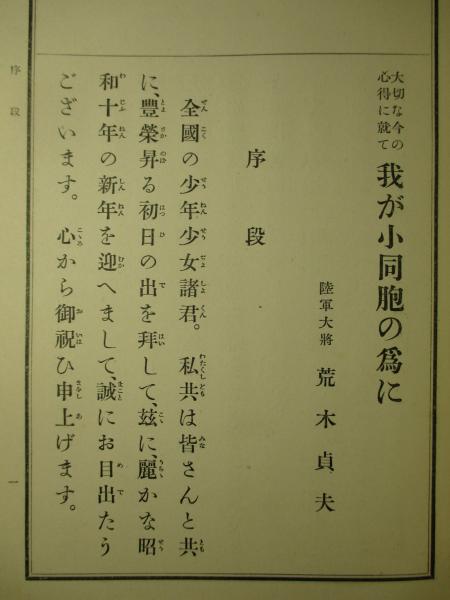 大切な今の
心得に就て
我が小同胞の爲に
陸軍大將 荒木貞夫
序段
全國の少年少女諸君。私共は皆さんと共
に、豐榮昇る初日の出を拜して、玆に、麗かな昭
和十年の新年を迎へまして、誠にお目出たう
ございます。心から御祝ひ申上げます。
序段
一